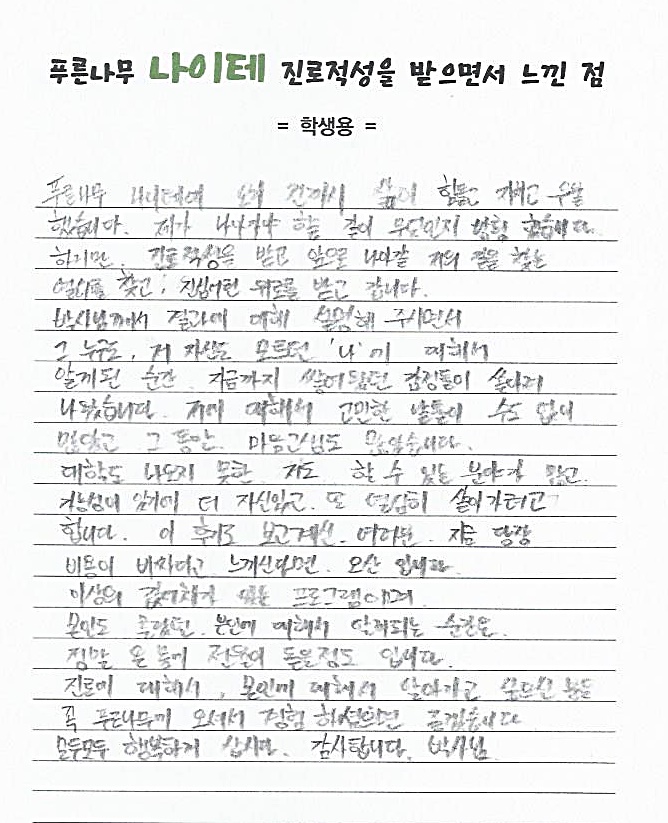 푸른나무 나이테 진로적성을 받으면서 느낀 점
= 학생용 =
푸른나무 나이테에 오기 전까지 삶이 힘들고 지치고 우울
했습니다. 제가 나아가야 할 길이 무엇인지 방황 했습니다.
하지만, 진로적성을 받고 앞으로 나아갈 저의 길을 찾는
열쇠를 찾고, 진심어린 위로를 받고 갑니다.
박사님께서 결과에 대해 설명해 주시면서
그 누구도, 저 자신도 모르던 '나'에 대해서
알게된 순간 지금까지 쌓여있던 감정들이 쏟아져
나왔습니다. 저에 대해서 고민한 날들이 수도 없이
많았고 그동안 마음고생도 많았습니다.
대학도 나오지 못한 저도 할 수 있는 분야가 많고,
가능성이 있기에 더 자신있고, 또 열심히 살아가려고
합니다. 이 후기를 보고계신 여러분 지금 당장
비용이 비싸다고 느끼신다면 오산 입니다.
이상의 값어치가 있는 프로그램이며
본인도 몰랐던 본인에 대해서 알게되는 순간은
정말 온 몸에 전율이 돋을정도 입니다.
진로에 대해서, 본인에 대해서 알아가고 싶으신 분들
꼭 푸른나무에 오셔서 경험 하셨으면 좋겠습니다
모두모두 행복하게 삽시다. 감사합니다, 박사님